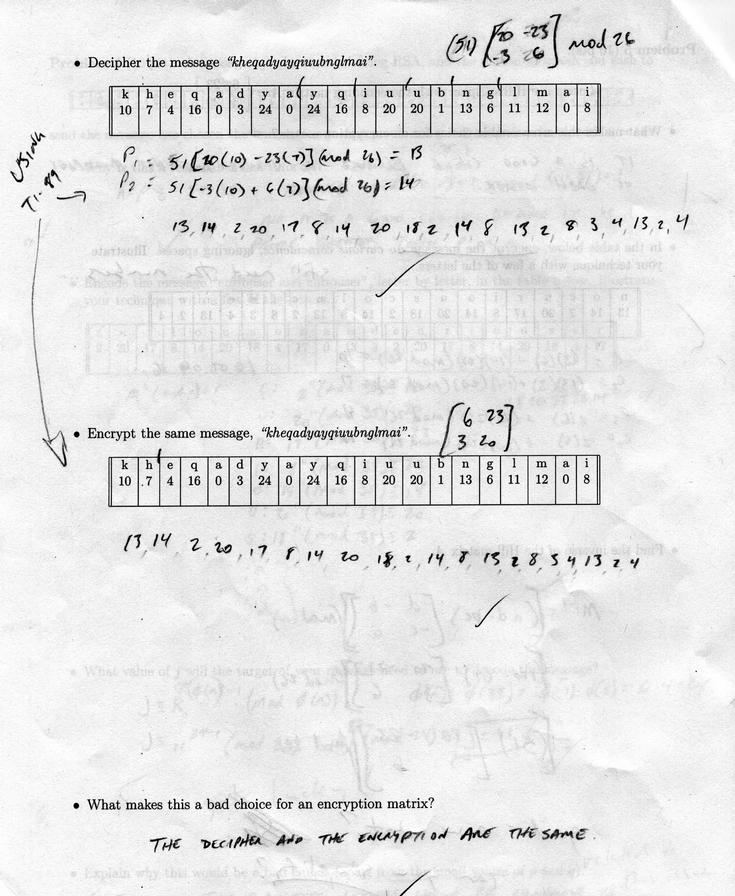 (51) [20 -23 -3 26] mod 26
• Decipher the message “kheqadyayqiuubnglmai”.
k h e q a d y a y q i u u b n g l m a i
10 7 4 16 0 3 24 0 24 16 8 20 20 1 13 6 11 12 0 8
P1 = 51[20(10) -23(7)] (mod 26) = 13
P2 = 51[-3(10) + 6(7)] (mod 26) = 14
USING
TI-89
13, 14, 2, 20, 17, 8, 14, 20, 18, 2, 14, 8, 13, 2, 8, 3, 4, 13, 2, 4
[6 23 3 20]
• Encrypt the same message, “kheqadyayqiuubnglmai”.
k h e q a d y a y q i u u b n g l m a i
10 7 4 16 0 3 24 0 24 16 8 20 20 1 13 6 11 12 0 8
13, 14, 2, 20, 17, 8, 14, 20, 18, 2, 14, 8, 13, 2, 8, 3, 4, 13, 2, 4
• What makes this a bad choice for an encryption matrix?
THE DECIPHER AND THE ENCRYPTION ARE THE SAME.